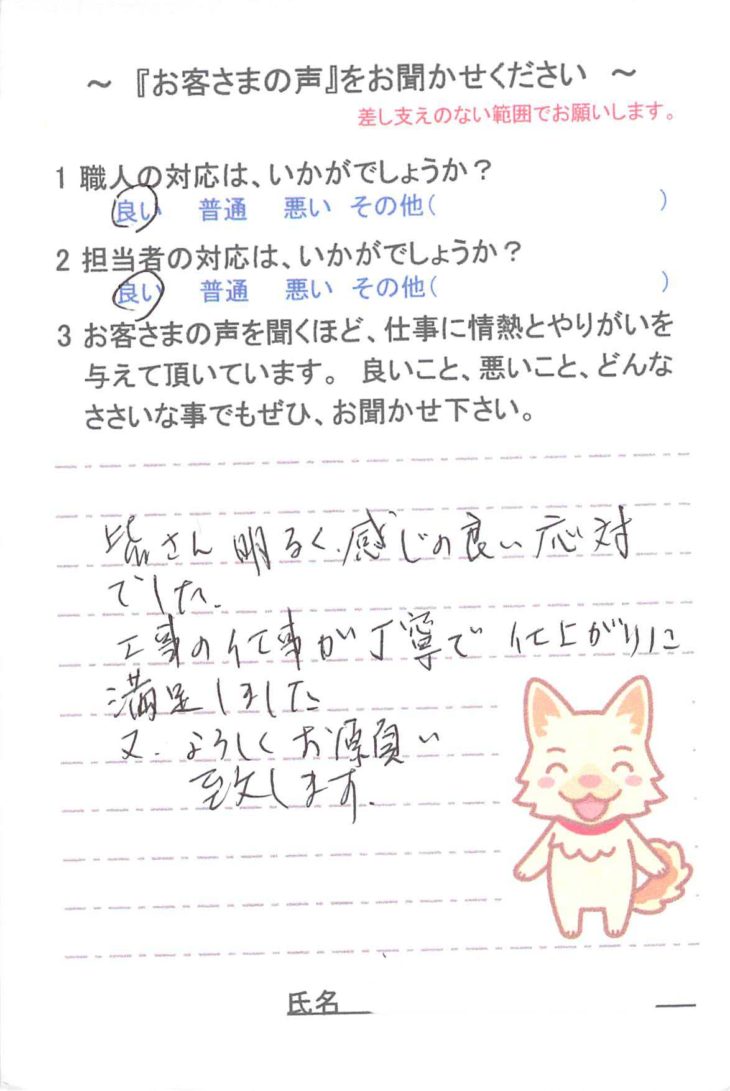 ~ 『お客さまの声』をお聞かせください ~
差し支えのない範囲でお願いします。
1 職人の対応は、いかがでしょうか？
良い 普通 悪い その他( )
2 担当者の対応は、いかがでしょうか？
良い 普通 悪い その他( )
3 お客さまの声を聞くほど、仕事に情熱とやりがいを
与えて頂いています。 良いこと、悪いこと、どんな
ささいな事でもぜひ、お聞かせ下さい。
皆さん明るく、感じの良い応対
でした。
工事の仕事が丁寧で仕上がりに
満足しました
又、よろしくお願い
致します。
氏名